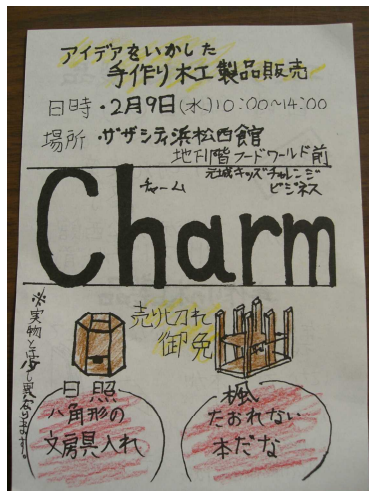 アイデアをいかした
手作り木工製品販売
日時・2月9日(水)10:00~14:00
場所・ザザシティ浜松西館
地下1階フードワールド前
元城キッズチャレンジ
ビジネス
チャーム
Charm
※実物と少し異なります。
売り切れ
御免
日照
八角形の
文房具入れ
楓
たおれない
本だな